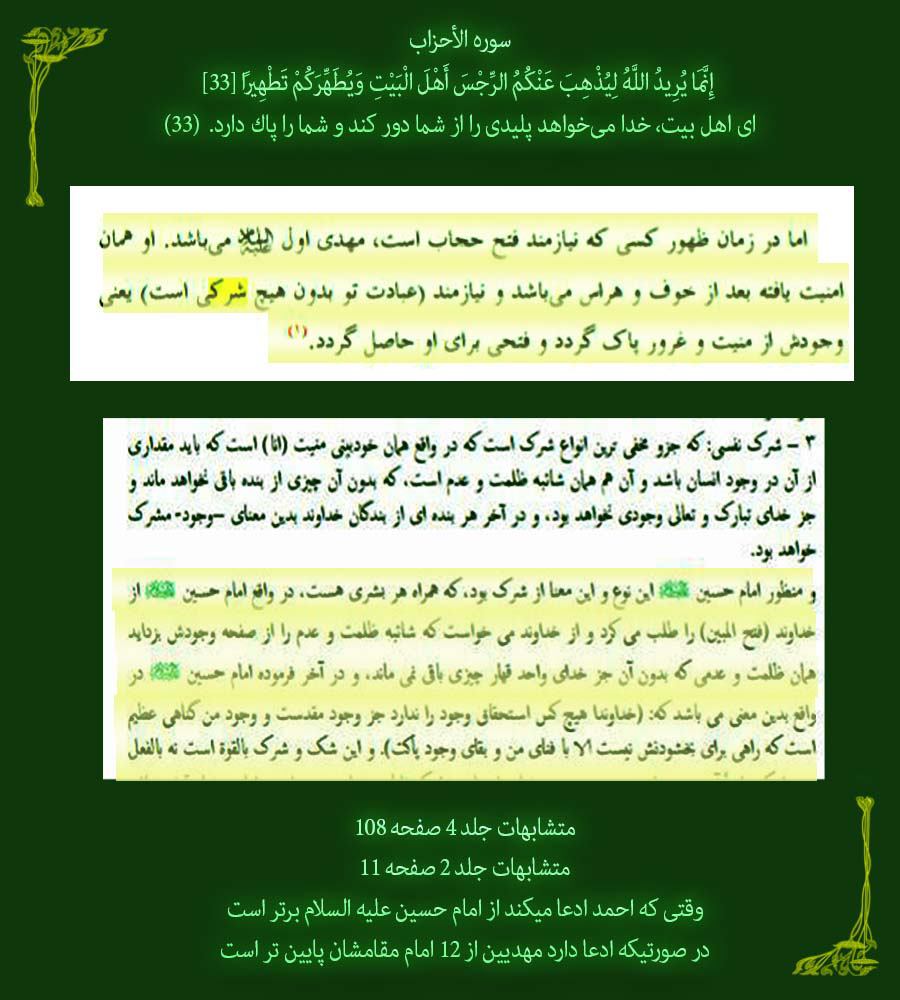 سوره الأحزاب
إِنَّمَا يُرِيدُ اللَّهُ لِيُذْهِبَ عَنْكُمُ الرِّجْسَ أَهْلَ الْبَيْتِ وَيُطَهِّرَكُمْ تَطْهِيرًا [33]
ای اهل بیت، خدا می‌خواهد پلیدی را از شما دور کند و شما را پاك دارد. (33)
اما در زمان ظهور کسی که نیازمند فتح حجاب است، مهدی اول می‌باشد. او همان
امنیت یافته بعد از خوف و هراس می‌باشد و نیازمند (عبادت تو بدون هیچ شرکی است) یعنی
وجودش از منیت و غرور پاک گردد و فتحی برای او حاصل گردد.(۱)
۳ – شرک نفسی: که جزو مخفی ترین انواع شرک است که در واقع همان خودبینی منیت (انا) است که باید مقداری
از آن در وجود انسان باشد و آن هم همان شائبه ظلمت و عدم است، که بدون آن چیزی از بنده باقی نخواهد ماند و
جز خدای تبارک و تعالی وجودی نخواهد بود، و در آخر هر بنده ای از بندگان خداوند بدین معنای –وجود- مشرک
خواهد بود.
و منظور امام حسین این نوع و این معنا از شرک بود، که همراه هر بشری هست، در واقع امام حسین از
خداوند (فتح المبین) را طلب می کرد و از خداوند می خواست که شائبه ظلمت و عدم را از صفحه وجودش بزداید
همان ظلمت و عدمی که بدون آن جز خدای واحد قهار چیزی باقی نمی ماند، و در آخر فرموده امام حسین در
واقع بدین معنی می باشد که: (خداوندا هیچ کس استحقاق وجود را ندارد جز وجود مقدست و وجود من گناهی عظیم
است که راهی برای بخشودنش نیست الا با فنای من و بقای وجود پاکت). و این شک و شرک بالقوة است نه بالفعل
متشابهات جلد 4 صفحه 108
متشابهات جلد 2 صفحه 11
وقتی که احمد ادعا میکند از امام حسین علیه السلام برتر است
در صورتیکه ادعا دارد مهدیین از 12 امام مقامشان پایین تر است